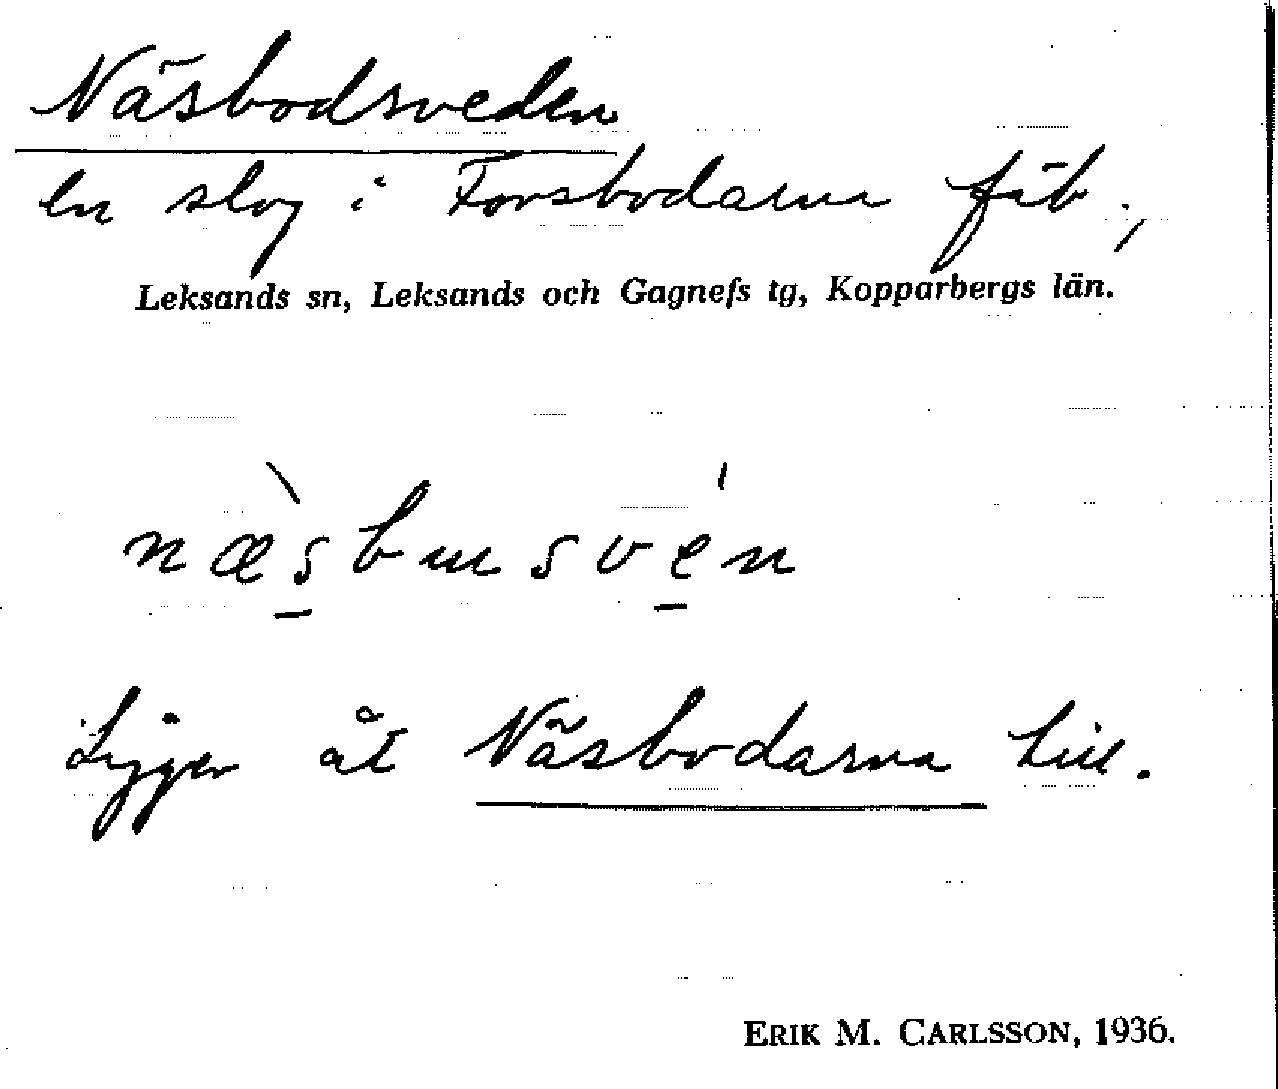 Näsbodsveden
en slog i Forsbodarna fäb.,
Leksands sn, Leksands och Gagnefs tg, Kopparbergs län.
næ̀sbusvén
Ligger åt Näsbodarna till.
ERIK M. CARLSSON, 1936.